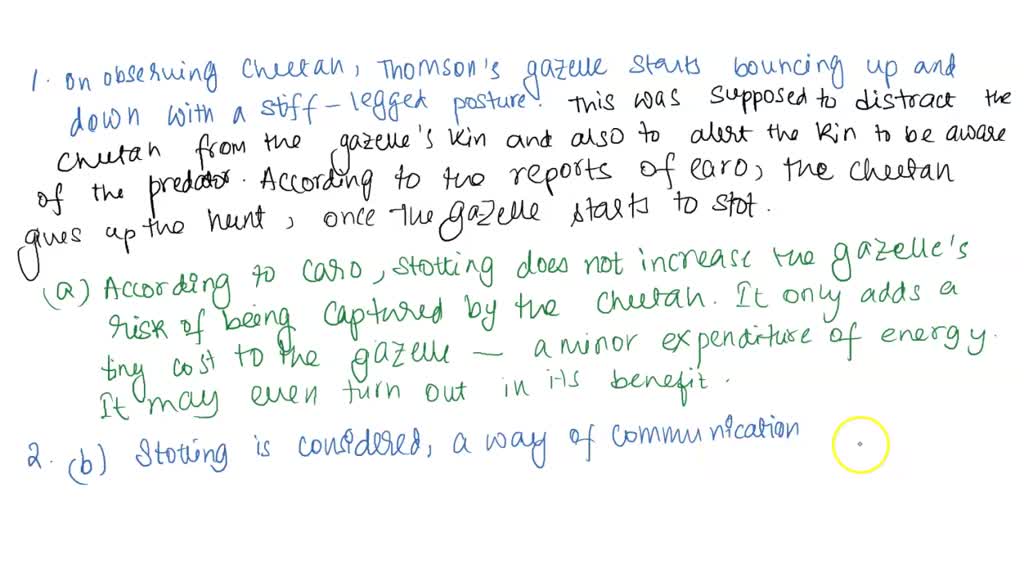 1. on observing cheetah, Thomson's gazelle starts bouncing up and
down with a stiff-legged posture. This was supposed to distract the
cheetah from the gazelle's kin and also to alert the kin to be aware
of the predator. According to the reports of caro, the cheetah
gives up the hunt, once the gazelle starts to stot.
(a) According to caro, stotting does not increase the gazelle's
risk of being captured by the cheetah. It only adds a
tiny cost to the gazelle — a minor expenditure of energy.
It may even turn out in its benefit.
2. (b) Stotting is considered, a way of communication